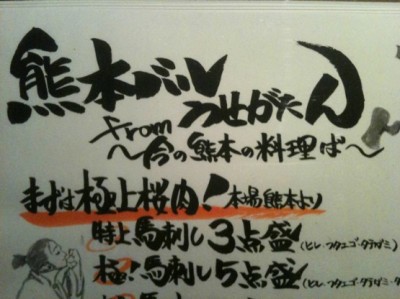 熊本バル
うせがたん
from
～今の熊本の料理ば～
まずは極上桜肉！本場熊本より
特上馬刺し3点盛(ヒレ・フタエゴ・タテガミ)
極！馬刺し5点盛